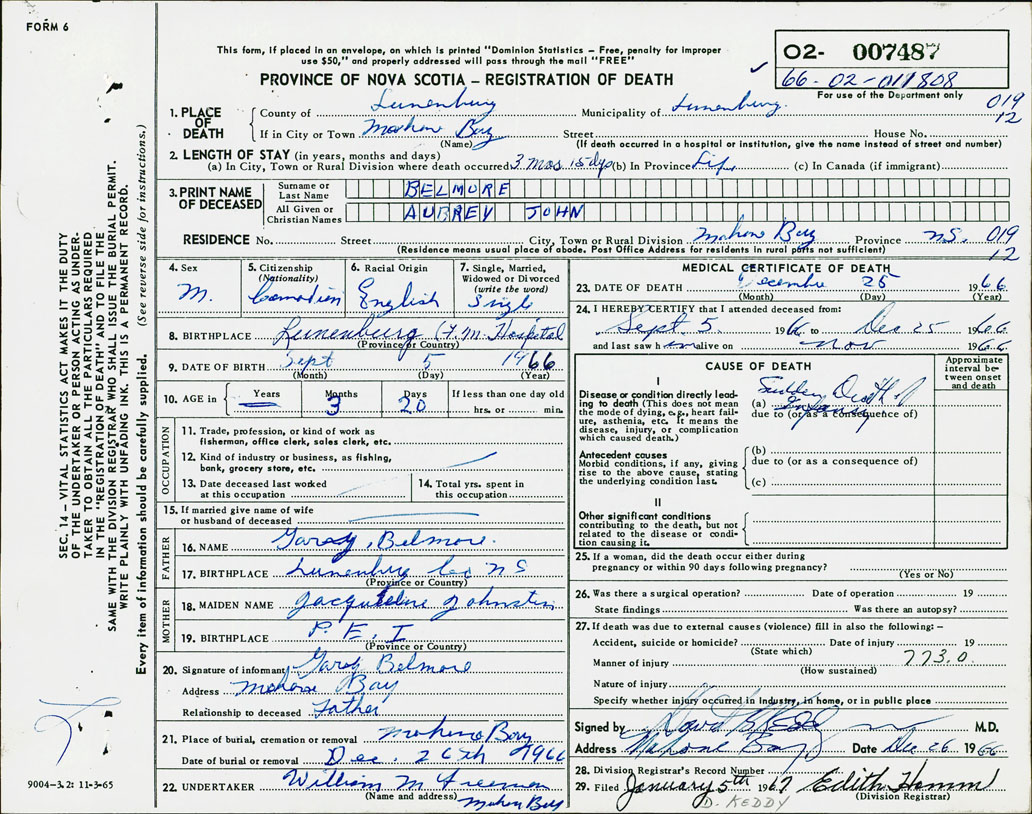 FORM 6
This form, if placed in an envelope, on which is printed "Dominion Statistics – Free, penalty for improper
use $50," and properly addressed will pass through the mail "FREE"
PROVINCE OF NOVA SCOTIA – REGISTRATION OF DEATH
O2- 007487
66-02-011808
For use of the Department only
019
12
1. PLACE OF DEATH
County of Lunenburg Municipality of Lunenburg.
If in City or Town Mahone Bay Street House No.
(Name) (If death occurred in a hospital or institution, give the name instead of street and number)
2. LENGTH OF STAY (in years, months and days)
(a) In City, Town or Rural Division where death occurred 3 mos 15 dys (b) In Province Life (c) In Canada (if immigrant)
3. PRINT NAME OF DECEASED
Surname or Last Name BELMORE
All Given or Christian Names AUBREY JOHN
RESIDENCE No. Street City, Town or Rural Division Mahone Bay Province N.S. 019
(Residence means usual place of abode. Post Office Address for residents in rural parts not sufficient) 12
4. Sex M.
5. Citizenship (Nationality) Canadian
6. Racial Origin English
7. Single, Married, Widowed or Divorced (write the word) Single
8. BIRTHPLACE Lunenburg (F.M. Hospital
(Province or Country)
9. DATE OF BIRTH Sept 5 1966
(Month) (Day) (Year)
10. AGE in Years Months 3 Days 20 If less than one day old hrs. or min.
OCCUPATION
11. Trade, profession, or kind of work as
fisherman, office clerk, sales clerk, etc.
12. Kind of industry or business, as fishing,
bank, grocery store, etc.
13. Date deceased last worked
at this occupation
14. Total yrs. spent in
this occupation
15. If married give name of wife
or husband of deceased
FATHER
16. NAME Garody Belmore.
17. BIRTHPLACE Lunenburg Co NS
(Province or Country)
MOTHER
18. MAIDEN NAME Jacqueline Johnston
19. BIRTHPLACE P.E.I
(Province or Country)
20. Signature of informant Belmore
Address Mahone Bay
Relationship to deceased Father
21. Place of burial, cremation or removal Mahone Bay
Date of burial or removal Dec. 26th 1966
22. UNDERTAKER William M Freeman
(Name and address) Mahone Bay
MEDICAL CERTIFICATE OF DEATH
23. DATE OF DEATH December 25 1966
(Month) (Day) (Year)
24. I HEREBY CERTIFY that I attended deceased from:
Sept 5 1966 to Dec 25 1966
and last saw him alive on Nov 1966
CAUSE OF DEATH
Approximate interval between onset and death
I
Disease or condition directly leading to death (This does not mean the mode of dying, e.g., heart failure, asthenia, etc. It means the disease, injury, or complication which caused death.)
(a) Sudden Death of Infancy
due to (or as a consequence of)
Antecedent causes
Morbid conditions, if any, giving rise to the above cause, stating the underlying condition last.
(b)
due to (or as a consequence of)
(c)
II
Other significant conditions
contributing to the death, but not related to the disease or condition causing it.
25. If a woman, did the death occur either during
pregnancy or within 90 days following pregnancy?
(Yes or No)
26. Was there a surgical operation? Date of operation 19
State findings Was there an autopsy?
27. If death was due to external causes (violence) fill in also the following: –
Accident, suicide or homicide? Date of injury 19
(State which)
Manner of injury 773.0
(How sustained)
Nature of injury
Specify whether injury occurred in industry, in home, or in public place
Signed by David M.D.
Address Mahone Bay Date Dec 26 1966
28. Division Registrar's Record Number
29. Filed January 5th 1967 Edith Hamm
D. KEDDY (Division Registrar)
SEC. 14 – VITAL STATISTICS ACT MAKES IT THE DUTY
OF THE UNDERTAKER OR PERSON ACTING AS UNDER-
TAKER TO OBTAIN ALL THE PARTICULARS REQUIRED
IN THE "REGISTRATION OF DEATH" AND TO FILE THE
SAME WITH THE DIVISION REGISTRAR WHO SHALL ISSUE THE BURIAL PERMIT.
WRITE PLAINLY WITH UNFADING INK. THIS IS A PERMANENT RECORD.
Every item of information should be carefully supplied. (See reverse side for instructions.)
9004-3.2: 11-3-65